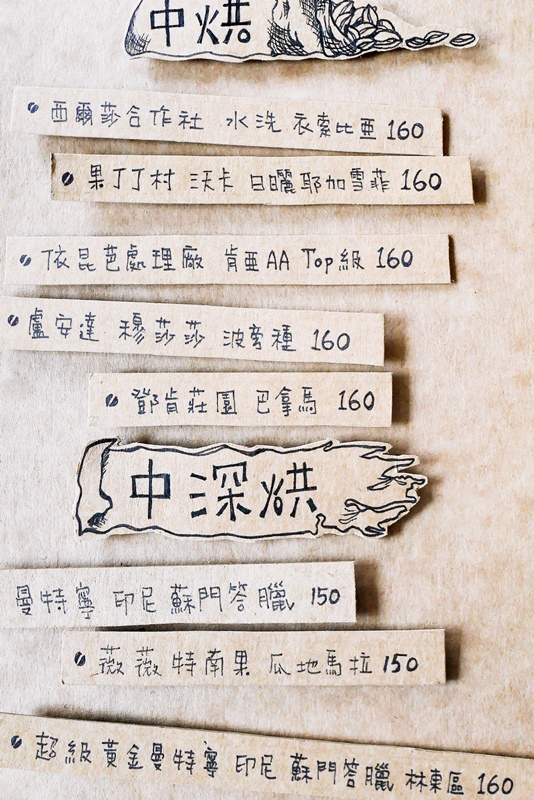 中烘
西爾莎合作社 水洗 衣索比亞 160
果丁丁村 沃卡 日曬耶加雪菲 160
依昆芭處理廠 肯亞AA Top級 160
盧安達 穆莎莎 波旁種 160
鄧肯莊園 巴拿馬 160
中深烘
曼特寧 印尼 蘇門答臘 150
薇薇特南果 瓜地馬拉 150
超級黃金曼特寧 印尼 蘇門答臘 林東區 160